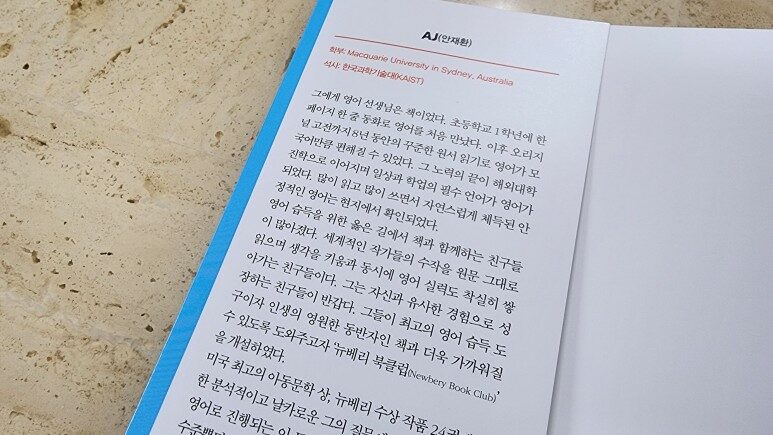 AJ(안재환)
학부: Macquarie University in Sydney, Australia
석사: 한국과학기술대(KAIST)
그에게 영어 선생님은 책이었다. 초등학교 1학년에 한
페이지 한 줄 동화로 영어를 처음 만났다. 이후 오리지
널 고전까지 8년 동안의 꾸준한 원서 읽기로 영어가 모
국어만큼 편해질 수 있었다. 그 노력의 끝이 해외대학
진학으로 이어지며 일상과 학업의 필수 언어가 영어가
되었다. 많이 읽고 많이 쓰면서 자연스럽게 체득된 안
정적인 영어는 현지에서 확인되었다.
영어 습득을 위한 옳은 길에서 책과 함께하는 친구들
이 많아졌다. 세계적인 작가들의 수작을 원문 그대로
읽으며 생각을 키움과 동시에 영어 실력도 착실히 쌓
아가는 친구들이다. 그는 자신과 유사한 경험으로 성
장하는 친구들이 반갑다. 그들이 최고의 영어 습득 도
구이자 인생의 영원한 동반자인 책과 더욱 가까워질
수 있도록 도와주고자 '뉴베리 북클럽(Newbery Book Club)'
을 개설하였다.
미국 최고의 아동문학 상, 뉴베리 수상 작품 24권
한 분석적이고 날카로운 그의 질문
영어로 진행되는 이